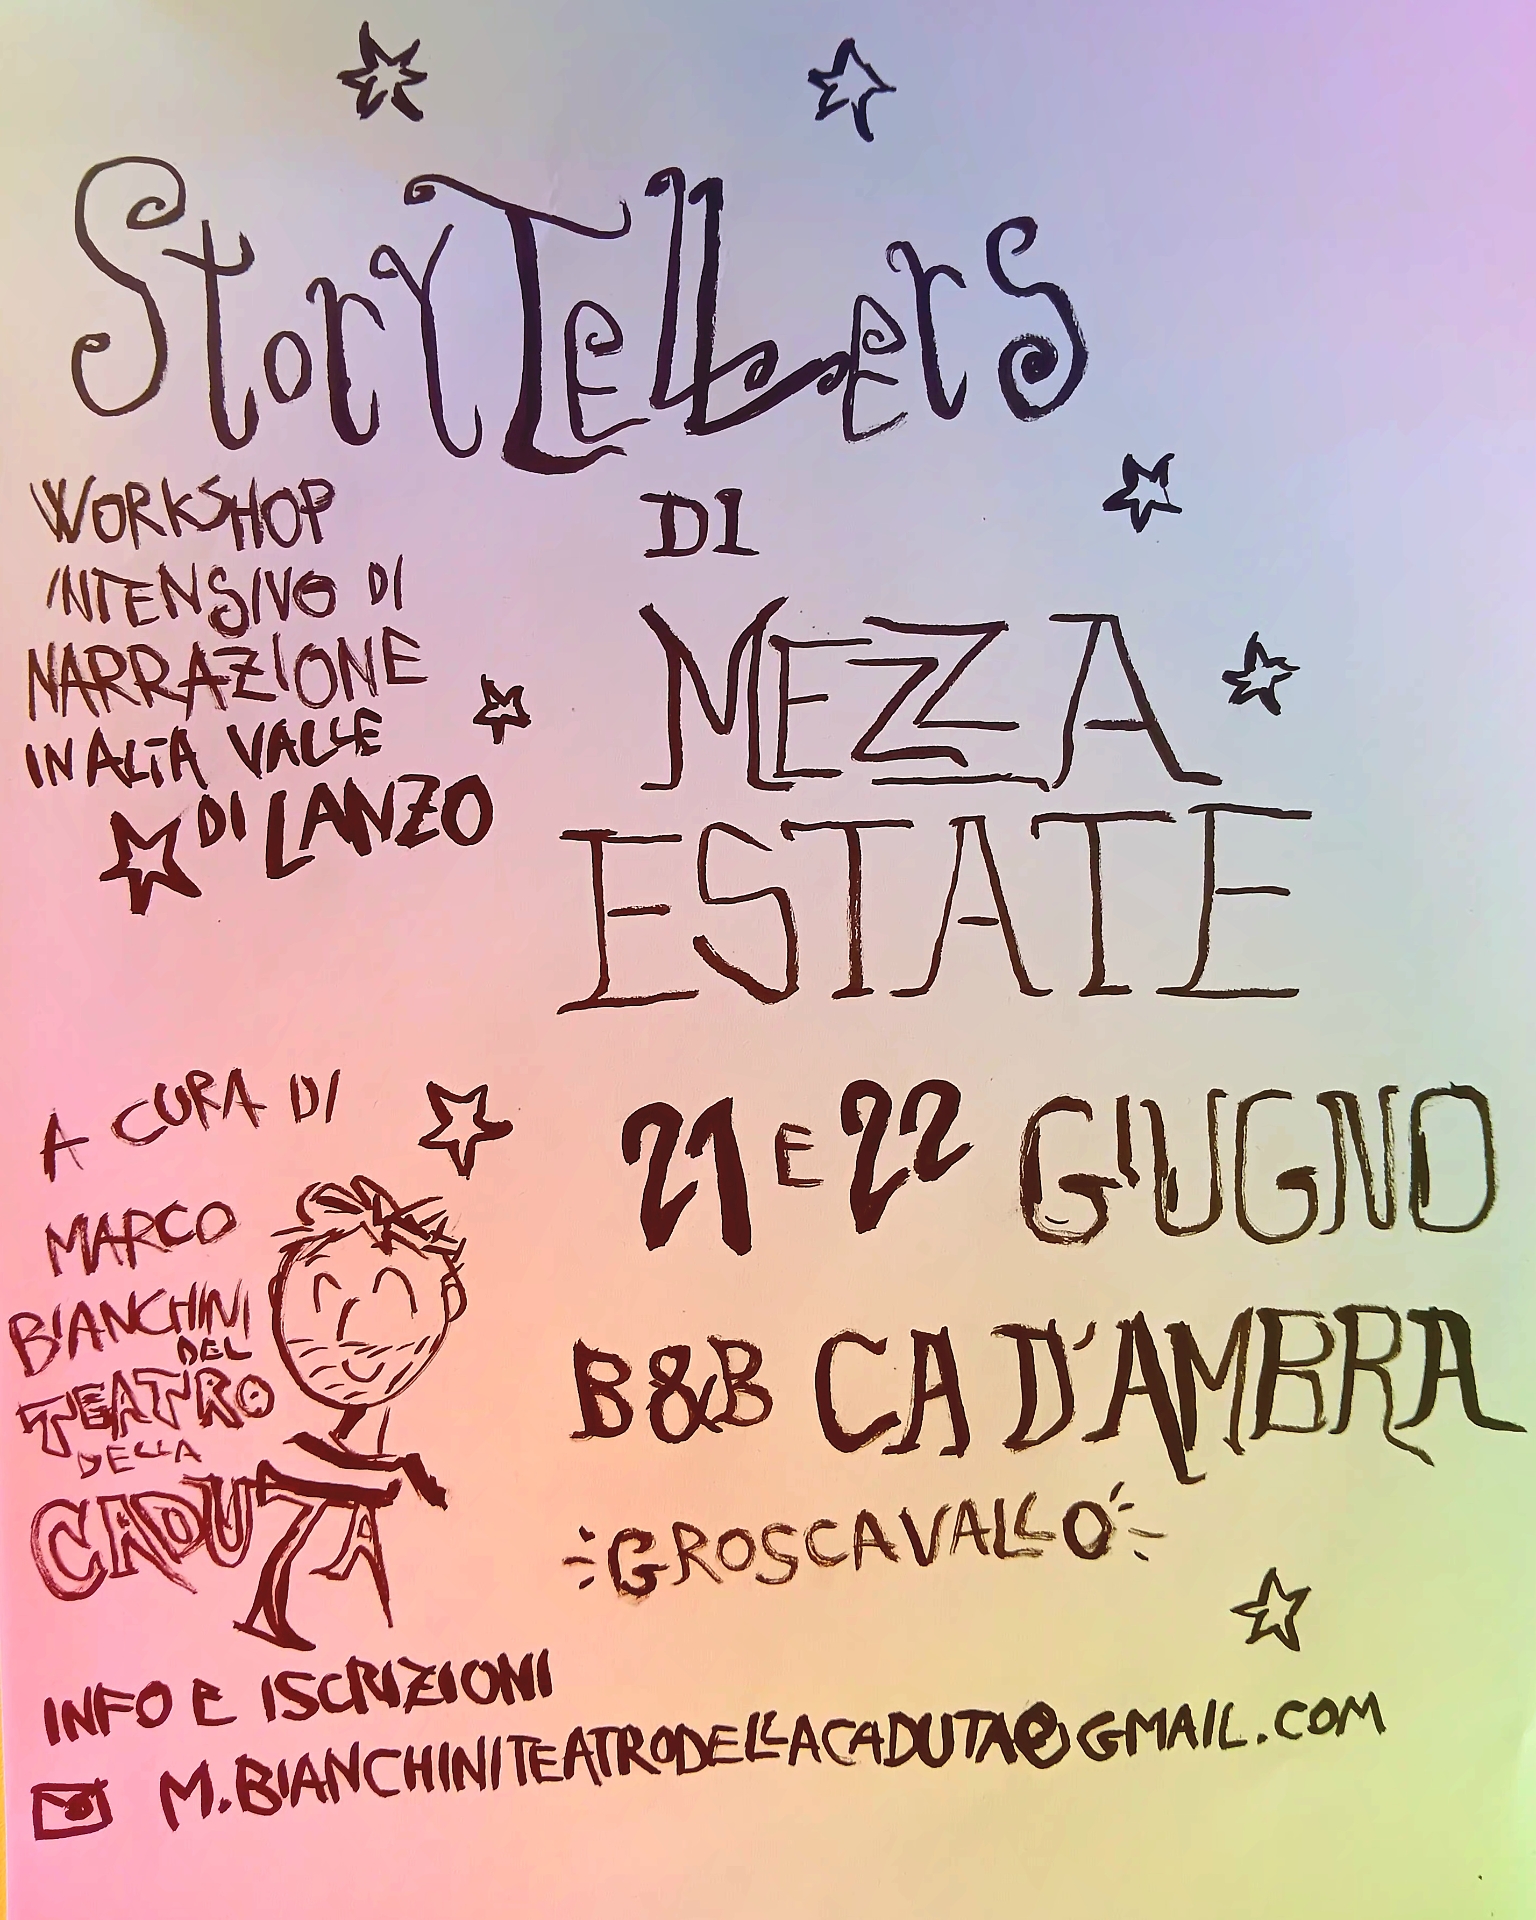 StoryTellers
DI
MEZZA
ESTATE
WORKSHOP
INTENSIVO DI
NARRAZIONE
IN ALTA VALLE
DI LANZO
A CURA DI
MARCO
BIANCHINI
DEL
TEATRO
DELLA
CADUTA
21 E 22 GIUGNO
B&B CA D'AMBRA
GROSCAVALLO
INFO E ISCRIZIONI
M.BIANCHINITEATRODELLACADUTA@GMAIL.COM